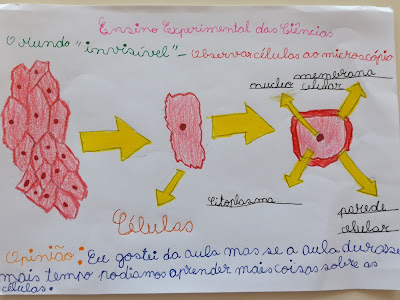 Ensino Experimental das Ciências
O mundo "invisível" - Observar células ao microscópio
membrana
núcleo celular
citoplasma
parede
celular
Células
Opinião: Eu gostei da aula mas se a aula durasse
mais tempo podíamos aprender mais coisas sobre as
células.